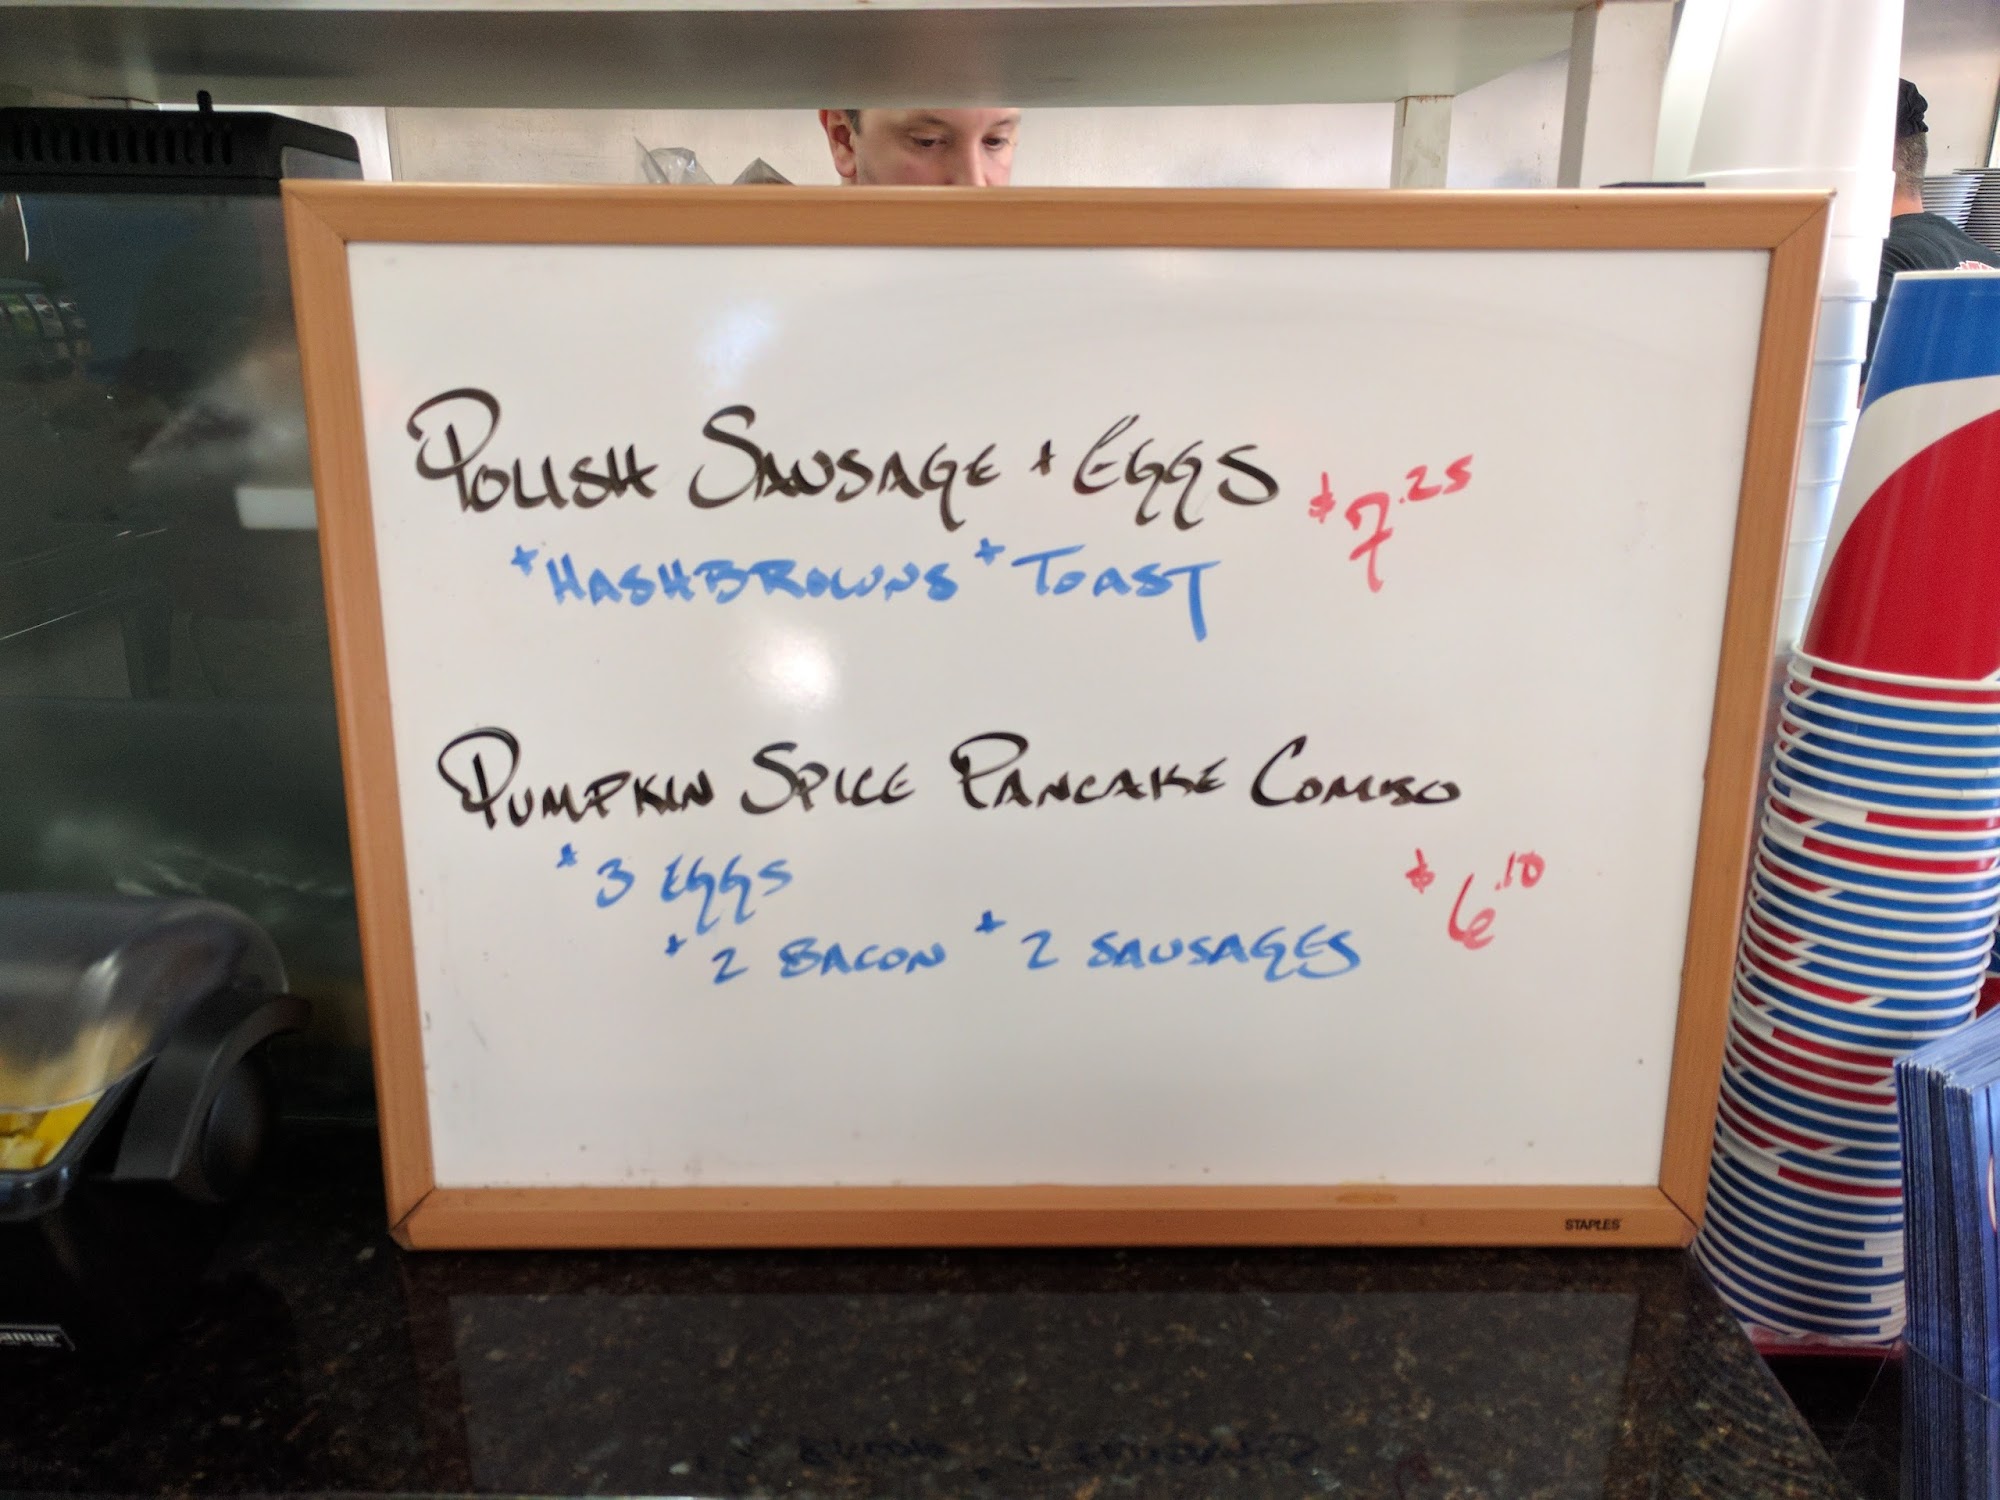 POLISH SAUSAGE + EGGS $7.25
+ HASHBROWNS + TOAST
PUMPKIN SPICE PANCAKE COMBO
+ 3 EGGS $6.10
+ 2 BACON + 2 SAUSAGES
STAPLES